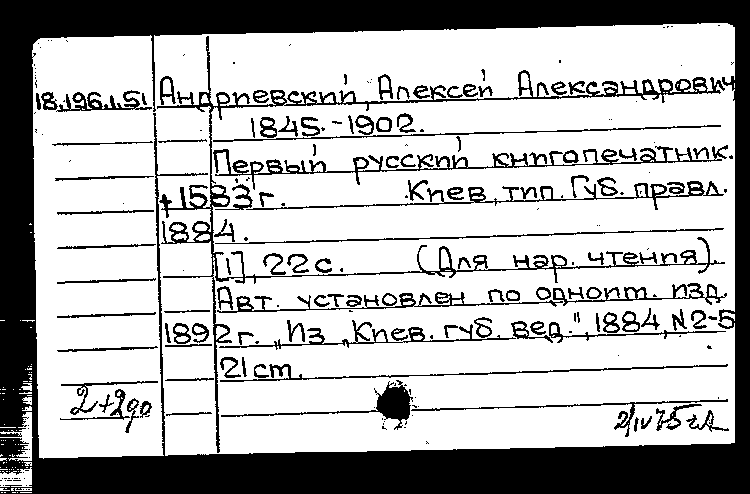 18.196.1.51 Андриевский, Алексей Александрович
1845.-1902.
Первый русский книгопечатник.
+1583г. Киев, тип. Губ. правл.
1884.
[1], 22 с. (Для нар. чтения).
Авт. установлен по одноит. изд.
1892г. „Из „Киев. губ. вед.", 1884, №2-5
21 ст.
2+2до
2/IV 75